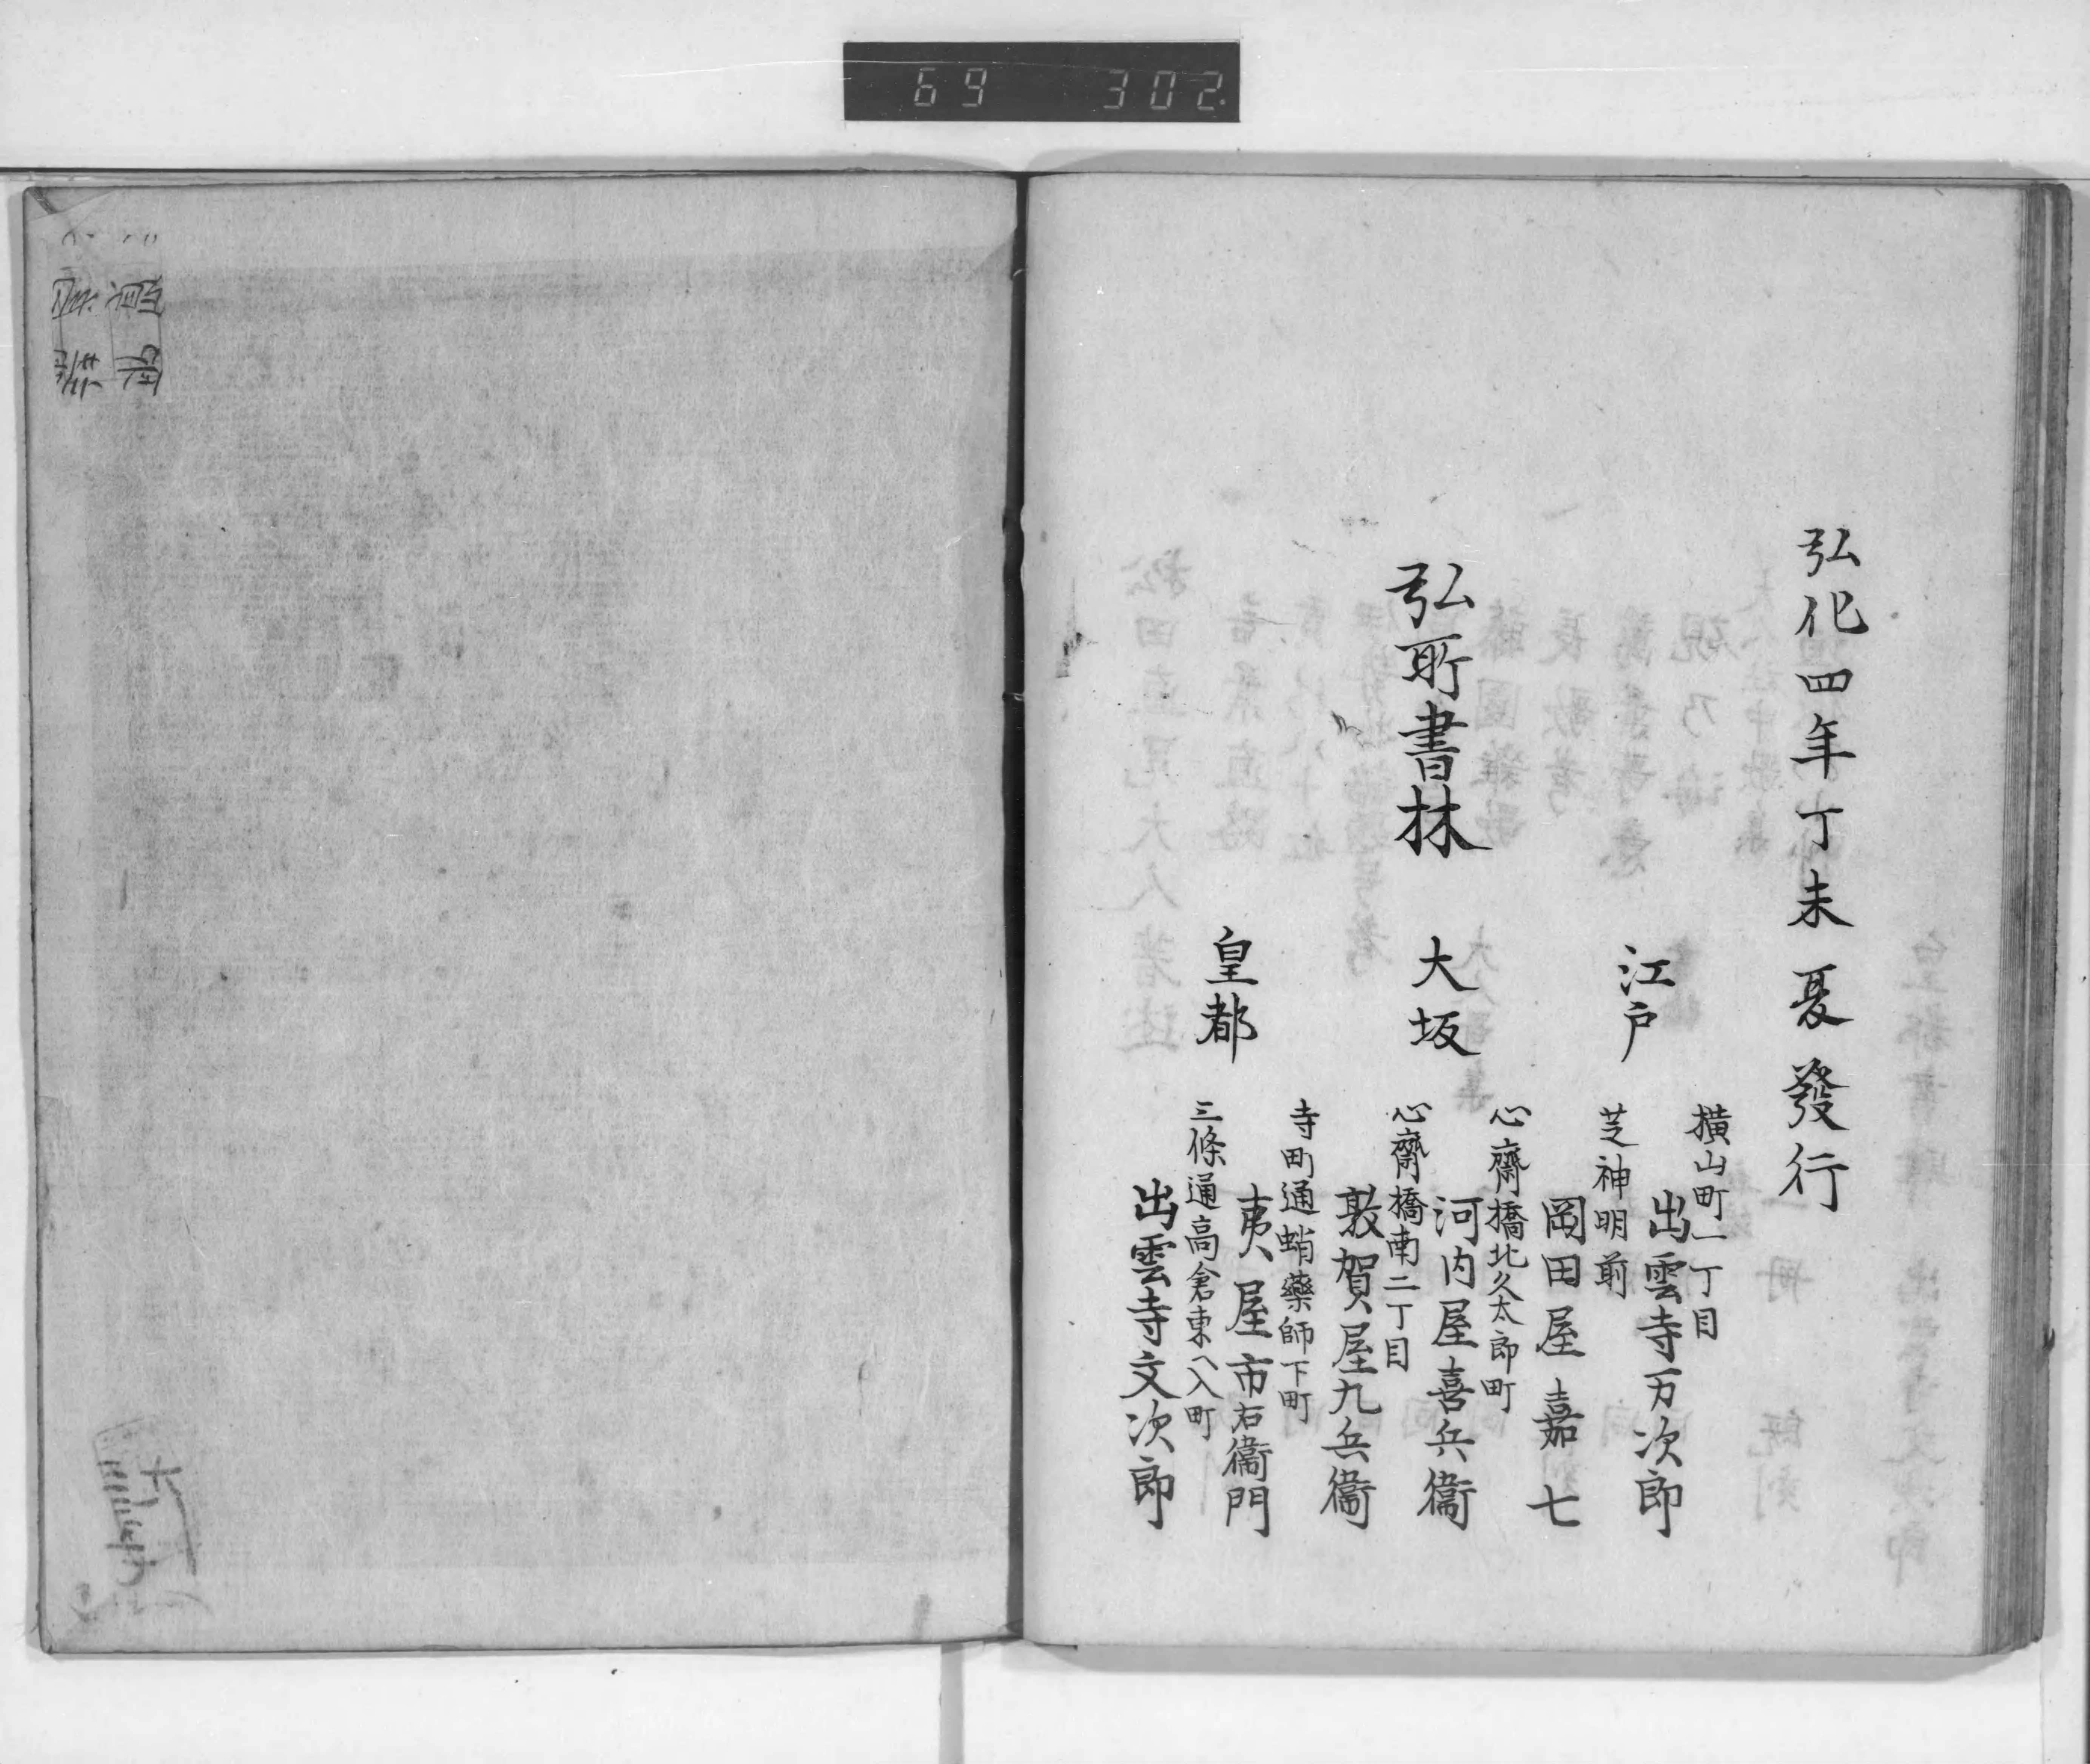 69 302
弘化四年丁未夏發行
弘所書林
江戸
横山町一丁目
出雲寺万次郎
芝神明前
岡田屋嘉七
大坂
心齋橋北久太郎町
河内屋喜兵衞
心齋橋南二丁目
敦賀屋九兵衞
皇都
寺町通蛸藥師下町
夷屋市右衞門
三條通高倉東ヘ入町
出雲寺文次郎